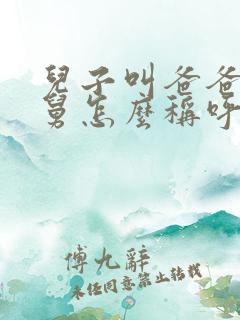 兒子叫爸爸
舅怎麼稱呼
傅九辭
未经同意禁止转载